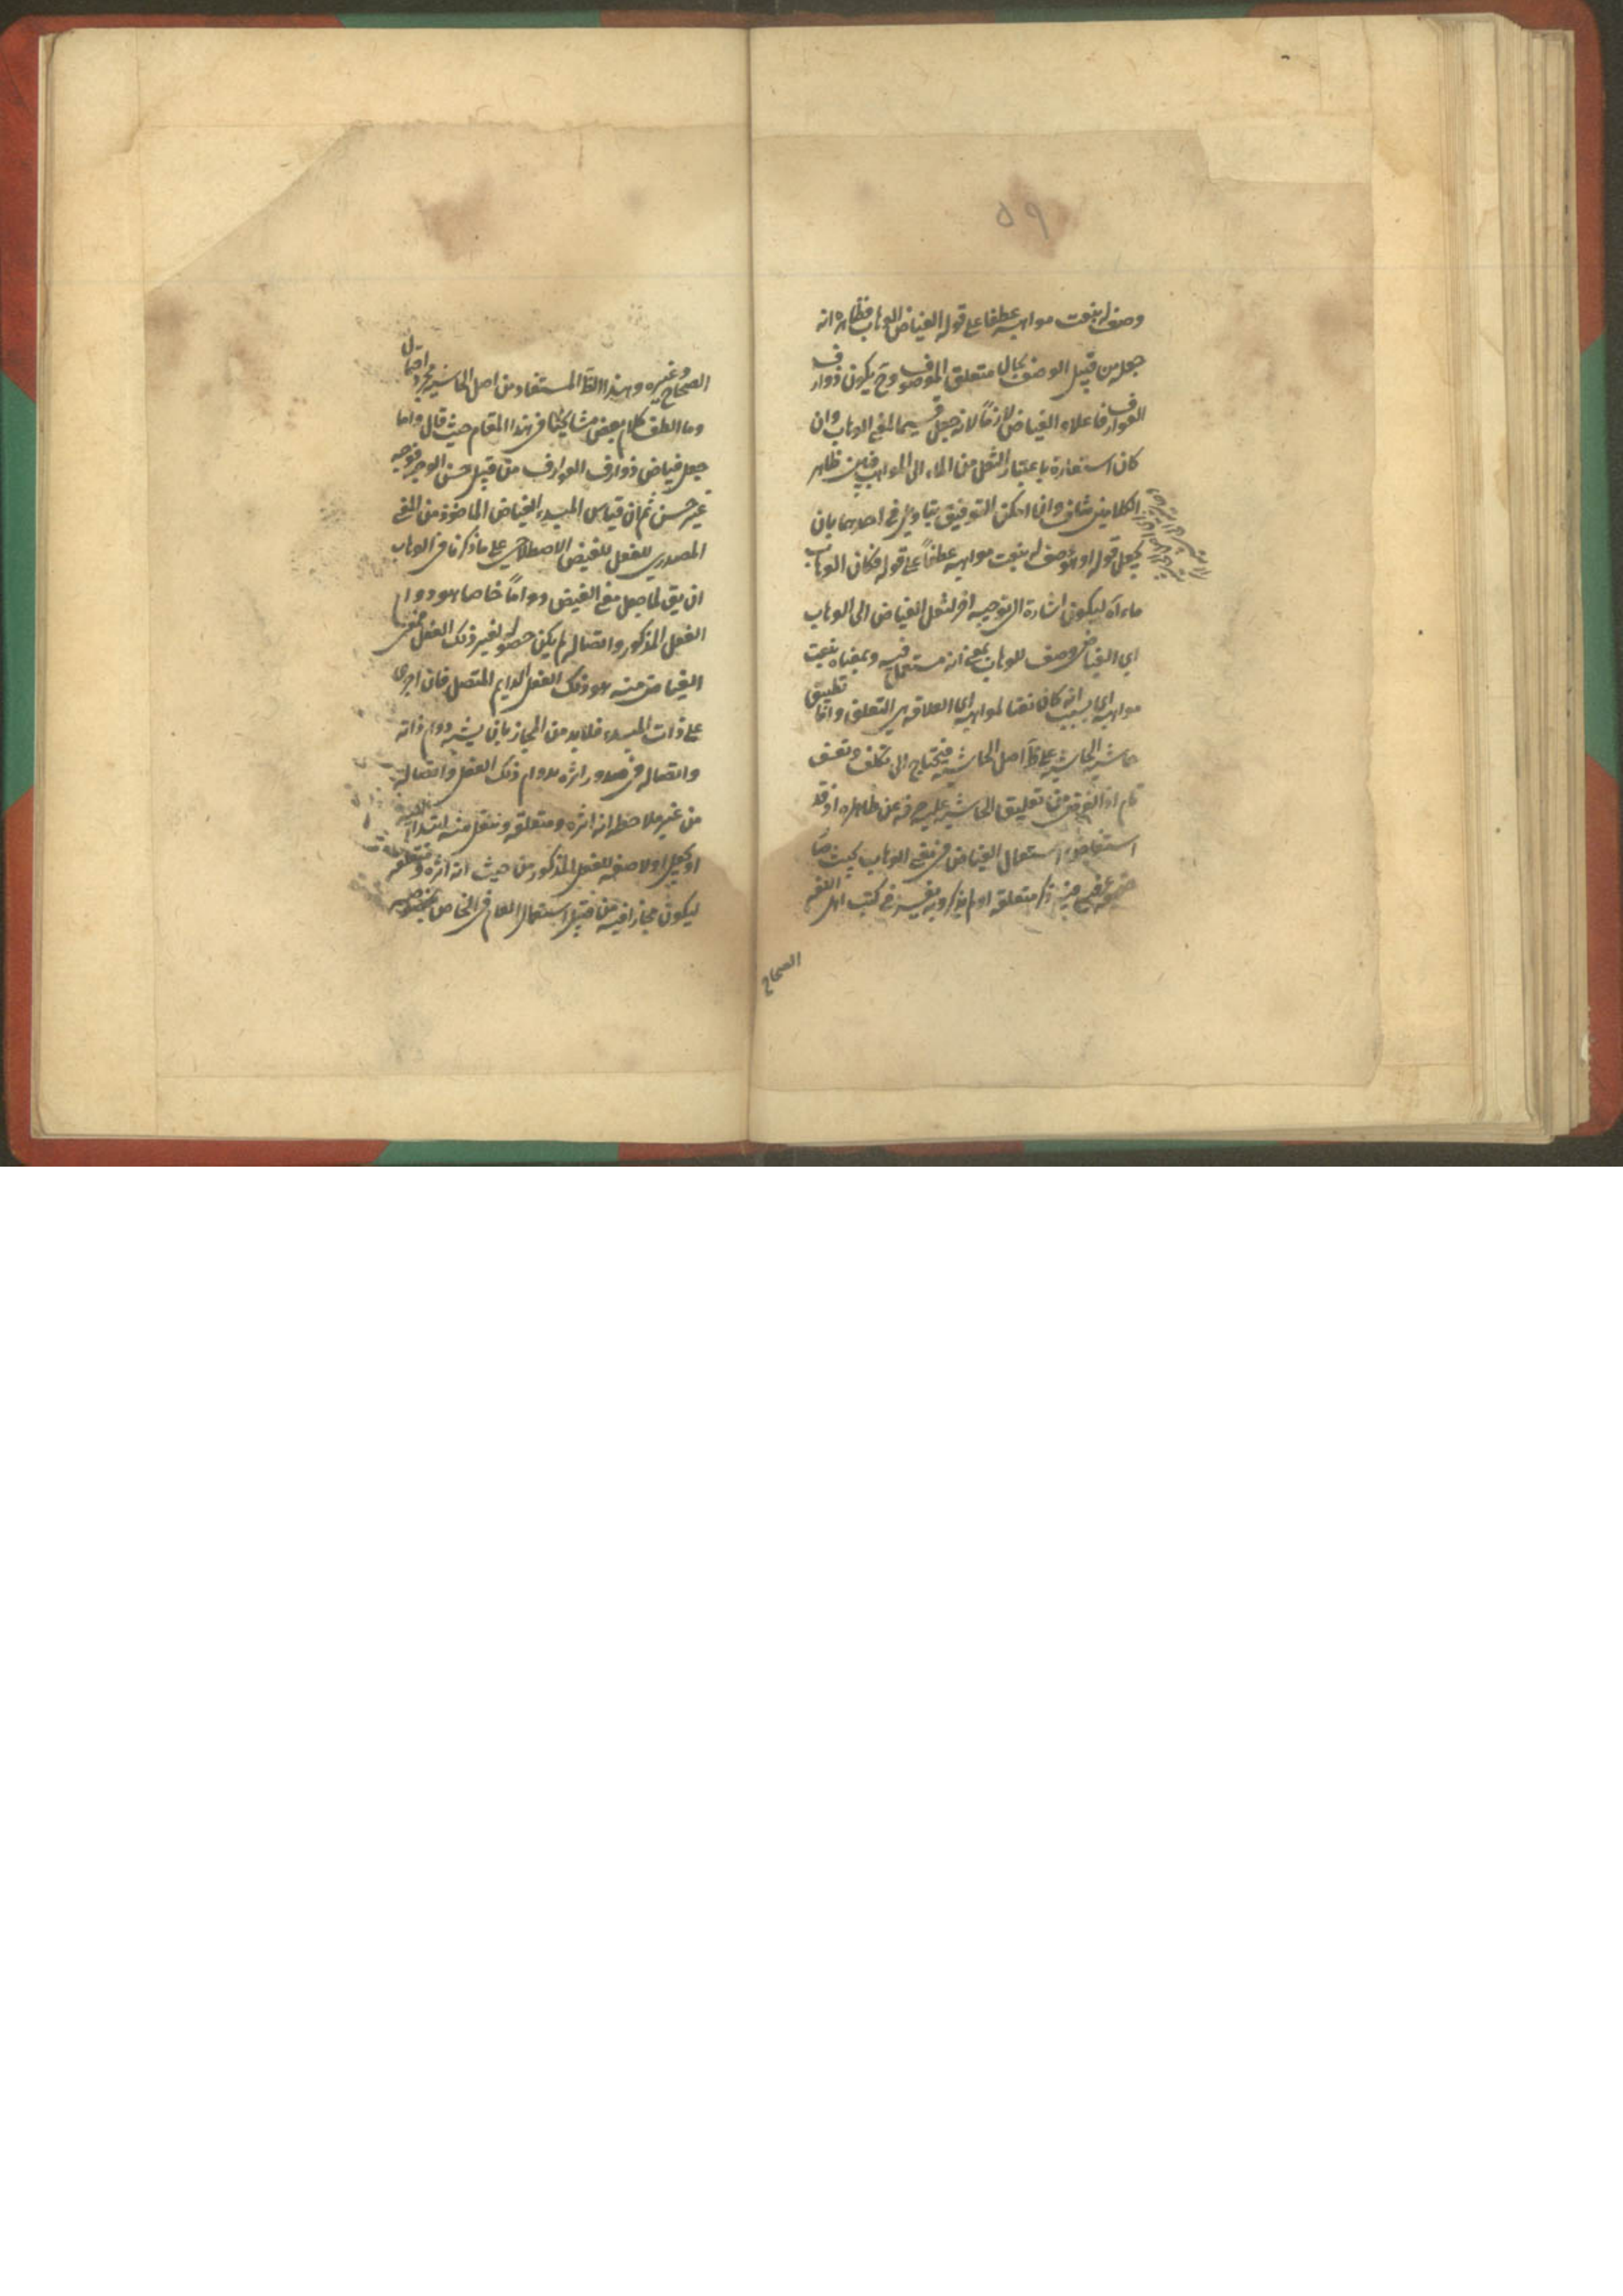 ٥٩
وصف له بنعت مواهبه عطفا على قوله الفياض الوهاب فظاهره انه
جعله من قبيل الوصف بحال متعلق الموصوف وح يكون ذوارف
العوارف فاعلا والفياض لازماً لانه جعل قسيما لمعنى الوهاب وان
كان استعارة باعتبار النقل من الماء الى المواهب فبين ظاهر
الكلامين تناف وان امكن التوفيق بتاويل في احدهما بان
يجعل قوله او هو وصف له بنعت مواهبه عطفاً على قوله فكان الوهاب
ماء اه ليكون اشارة الى توجيه اخر لنقل الفياض الى الوهاب
اي الفياض وصف للوهاب بمعنى انه مستعمل فيه وبمعناه بنعت
مواهبه اي بسبب انه كان نعتا لمواهبه اي العلاقة هي التعلق واما تطبيق
حاشية الحاشية على ظ اصل الحاشية فيحتاج الى تكلف وتعسف
تام اذ الغرض من تعليق الحاشية عليه صرفه عن ظاهره او قد
استفاض استعمال الفياض في معنى الوهاب بحيث صار
حقيقة عرفية فيه ذكر متعلقه اولم يذكر وبه يفسر في كتب اهل اللغة
الصحاح
الصحاح وغيره وهذا الظ المستفاد من اصل الحاشية مجرد احتمال
وما الطف كلام بعض مشايخنا في هذا المقام حيث قال واما
جعل فياض ذوارف العوارف من قبيل حسن الوجه فوجه
غير حسن ثم ان قياس المبدء الفياض الماخوذ من المعنى
المصدري للفعل للفيض الاصطلاحي على ما ذكرنا في الوهاب
ان يق لما جعل معنى الفيض دواماً خاصا هو دوام
الفعل المذكور واتصاله لم يكن حصوله لغير ذلك الفعل فمعنى
الفياض منه هو ذلك الفعل الدايم المتصل فان اجرى
على ذات المبدء فلا بد من المجاز بان يشبه دوام ذاته
واتصاله في صدور اثره بدوام ذلك الفعل واتصاله
من غير ملاحظة انه اثره ومتعلقه وينقل منه ابتداء اليه
او يجعل اولا صفة للفعل المذكور من حيث انه اثره ومتعلقه
ليكون مجازا فيه من قبيل استعمال العام في الخاص بخصوصه